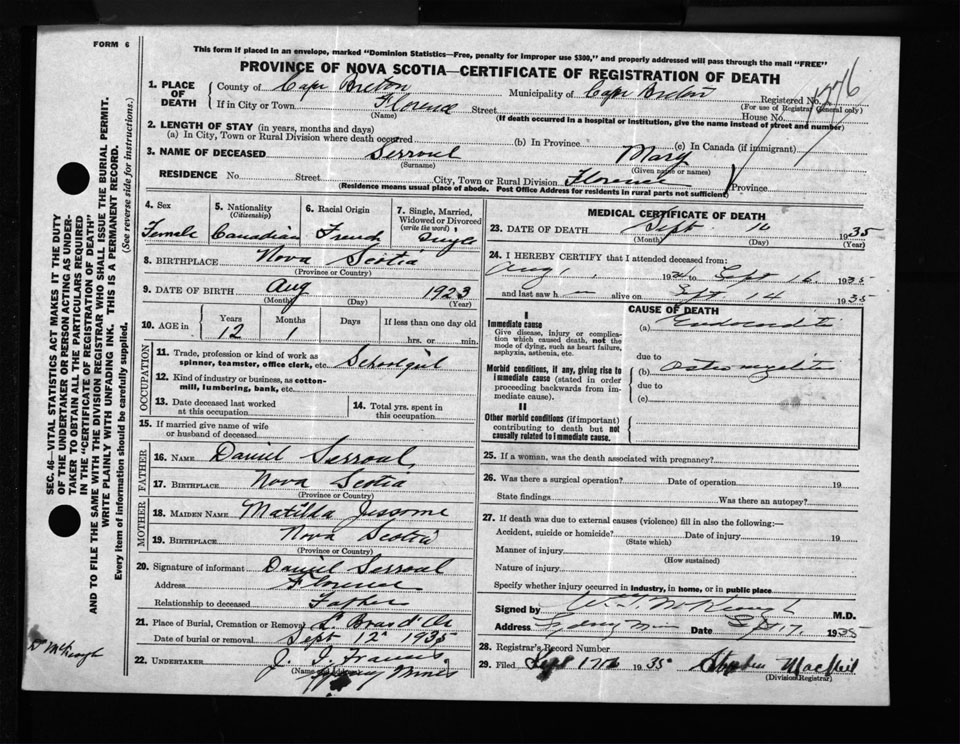 FORM 6
This form if placed in an envelope, marked "Dominion Statistics—Free, penalty for improper use $300," and properly addressed will pass through the mail "FREE"
PROVINCE OF NOVA SCOTIA—CERTIFICATE OF REGISTRATION OF DEATH
1. PLACE OF DEATH
County of Cape Breton Municipality of Cape Breton Registered No.
(For use of Registrar General only)
If in City or Town Florence Street House No.
(Name)
(If death occurred in a hospital or institution, give the name instead of street and number)
1276
2. LENGTH OF STAY (in years, months and days)
(a) In City, Town or Rural Division where death occurred (b) In Province (c) In Canada (if immigrant)
3. NAME OF DECEASED Serroul Mary
(Surname) (Given name or names)
RESIDENCE No. Street City, Town or Rural Division Florence Province
(Residence means usual place of abode. Post Office Address for residents in rural parts not sufficient)
4. Sex
Female
5. Nationality
(Citizenship)
Canadian
6. Racial Origin
French
7. Single, Married, Widowed or Divorced
(write the word)
Single
8. BIRTHPLACE Nova Scotia
(Province or Country)
9. DATE OF BIRTH Aug 1923
(Month) (Day) (Year)
10. AGE in Years Months Days If less than one day old
12 1 hrs. or min.
OCCUPATION
11. Trade, profession or kind of work as spinner, teamster, office clerk, etc. Schoolgirl
12. Kind of industry or business, as cotton-mill, lumbering, bank, etc.
13. Date deceased last worked at this occupation
14. Total yrs. spent in this occupation
15. If married give name of wife or husband of deceased
FATHER
16. NAME Daniel Serroul
17. BIRTHPLACE Nova Scotia
(Province or Country)
MOTHER
18. MAIDEN NAME Matilda Jessome
19. BIRTHPLACE Nova Scotia
(Province or Country)
20. Signature of informant Daniel Serroul
Address Florence
Relationship to deceased Father
21. Place of Burial, Cremation or Removal L. Bras d'Or
Date of burial or removal Sept 1935
22. UNDERTAKER J. J. Francis
(Name and Address) Sydney Mines
MEDICAL CERTIFICATE OF DEATH
23. DATE OF DEATH Sept 16 1935
(Month) (Day) (Year)
24. I HEREBY CERTIFY that I attended deceased from:
Aug 1 19 to Sept 16 1935
and last saw h alive on Sept 14 1935
CAUSE OF DEATH
I
Immediate cause
Give disease, injury or complication which caused death, not the mode of dying, such as heart failure, asphyxia, asthenia, etc.
(a) Endocarditis
due to
Morbid conditions, if any, giving rise to immediate cause (stated in order proceeding backwards from immediate cause).
(b) Osteomyelitis
due to
(c)
II
Other morbid conditions (if important) contributing to death but not causally related to immediate cause.
25. If a woman, was the death associated with pregnancy?
26. Was there a surgical operation? Date of operation 19
State findings Was there an autopsy?
27. If death was due to external causes (violence) fill in also the following:—
Accident, suicide or homicide? Date of injury 19
(State which)
Manner of injury
(How sustained)
Nature of injury
Specify whether injury occurred in industry, in home, or in public place
Signed by McKeough M.D.
Address Sydney Mines Date Sept 17, 1935
28. Registrar's Record Number
29. Filed Sept 17th 1935 Stephen MacNeil
(Division Registrar)
SEC. 46—VITAL STATISTICS ACT MAKES IT THE DUTY
OF THE UNDERTAKER OR PERSON ACTING AS UNDER-
TAKER TO OBTAIN ALL THE PARTICULARS REQUIRED
IN THE "CERTIFICATE OF REGISTRATION OF DEATH"
AND TO FILE THE SAME WITH THE DIVISION REGISTRAR WHO SHALL ISSUE THE BURIAL PERMIT.
WRITE PLAINLY WITH UNFADING INK. THIS IS A PERMANENT RECORD.
Every item of information should be carefully supplied. (See reverse side for instructions.)
McKeough